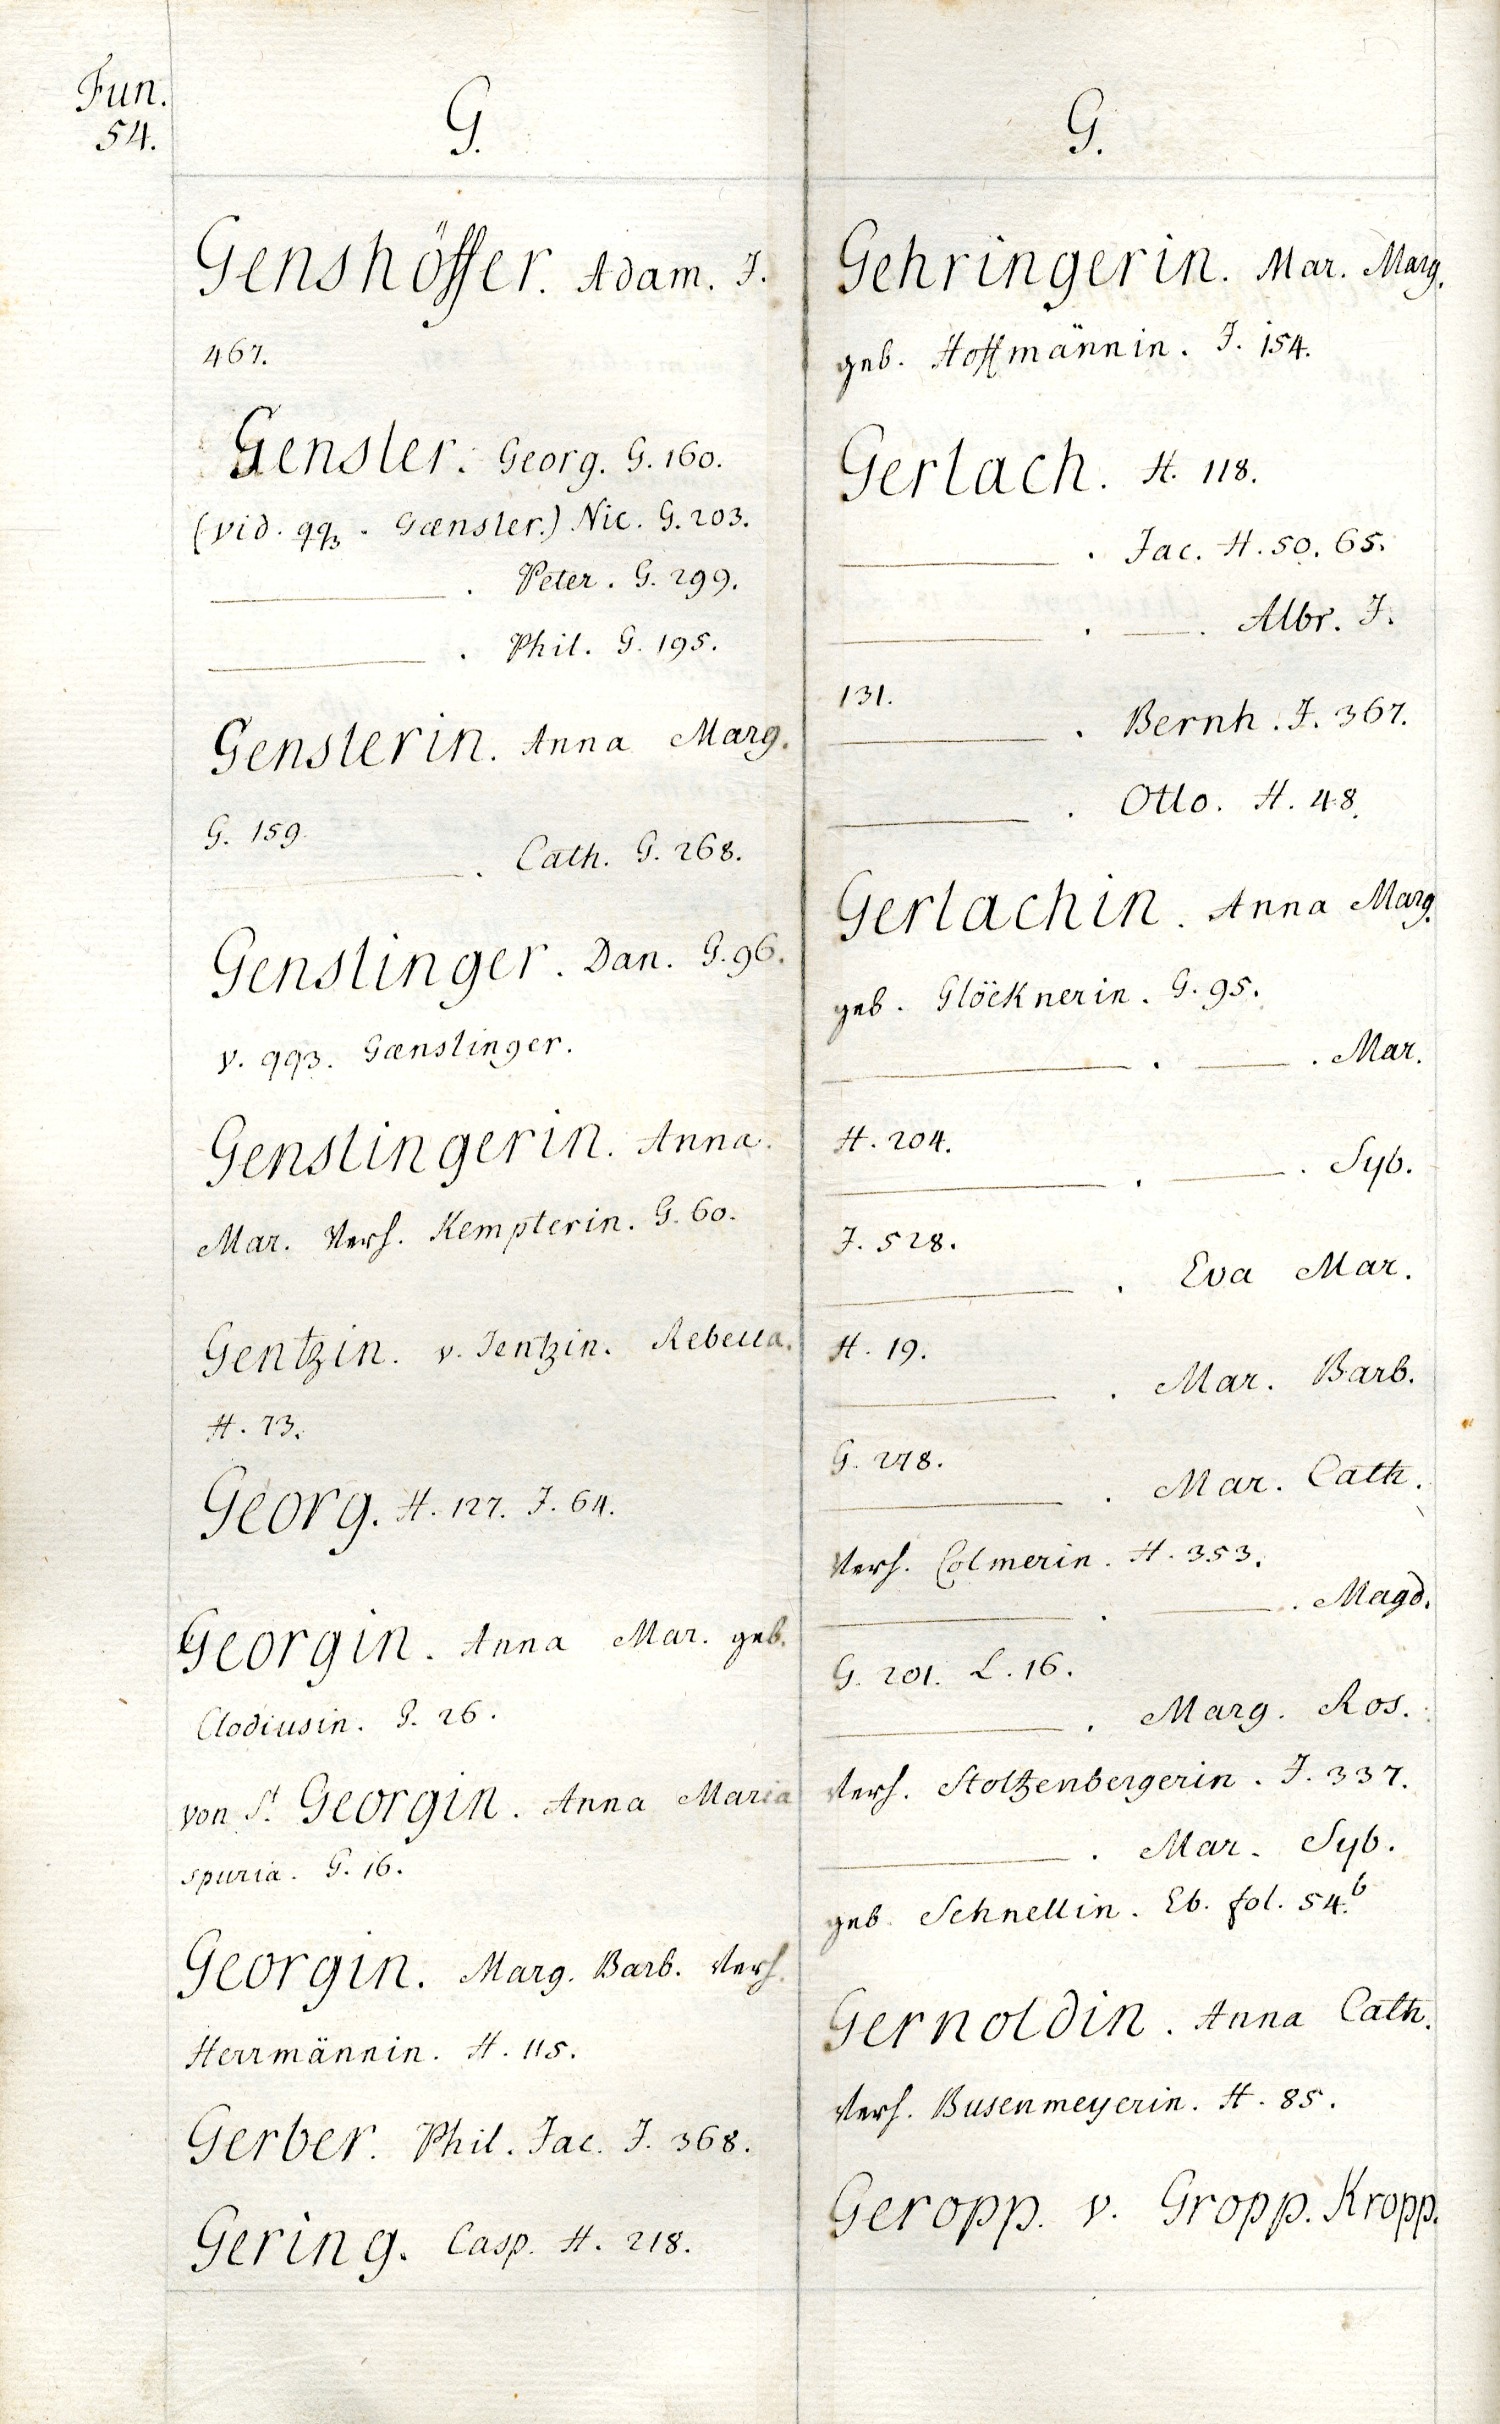 Fun.
54.
G.
Genshöffer. Adam. J.
467.
Gensler. Georg. G. 160.
(vid. qq3. Gænsler.) Nic. G. 203.
———. Peter. G. 299.
———. Phil. G. 195.
Genslerin. Anna Marg.
G. 159.
———. Cath. G. 268.
Genslinger. Dan. G. 96.
v. qq3. Gænslinger.
Genslingerin. Anna.
Mar. Verh. Kempterin. G. 60.
Gentzin. v. Jentzin. Rebecca.
H. 73.
Georg. H. 127. J. 64.
Georgin. Anna Mar. geb.
Clodiusin. G. 26.
von St. Georgin. Anna Maria
spuria. G. 16.
Georgin. Marg. Barb. Verh.
Herrmännin. H. 115.
Gerber. Phil. Jac. J. 368.
Gering. Casp. H. 218.
G.
Gehringerin. Mar. Marg.
geb. Hoffmännin. J. 154.
Gerlach. H. 118.
———. Jac. H. 50. 65.
———. ——. Albr. J.
131.
———. Bernh. J. 367.
———. Otto. H. 48.
Gerlachin. Anna Marg.
geb. Glöcknerin. G. 95.
———. ——. Mar.
H. 204.
———. ——. Syb.
J. 528.
———. Eva Mar.
H. 19.
———. Mar. Barb.
G. 278.
———. Mar. Cath.
Verh. Colmerin. H. 353.
———. ——. Magd.
G. 201. L. 16.
———. Marg. Ros.
Verh. Stoltzenbergerin. J. 337.
———. Mar. Syb.
geb. Schnellin. Eb. fol. 54.b
Gernoldin. Anna Cath.
Verh. Busenmeyerin. H. 85.
Geropp. v. Gropp. Kropp.